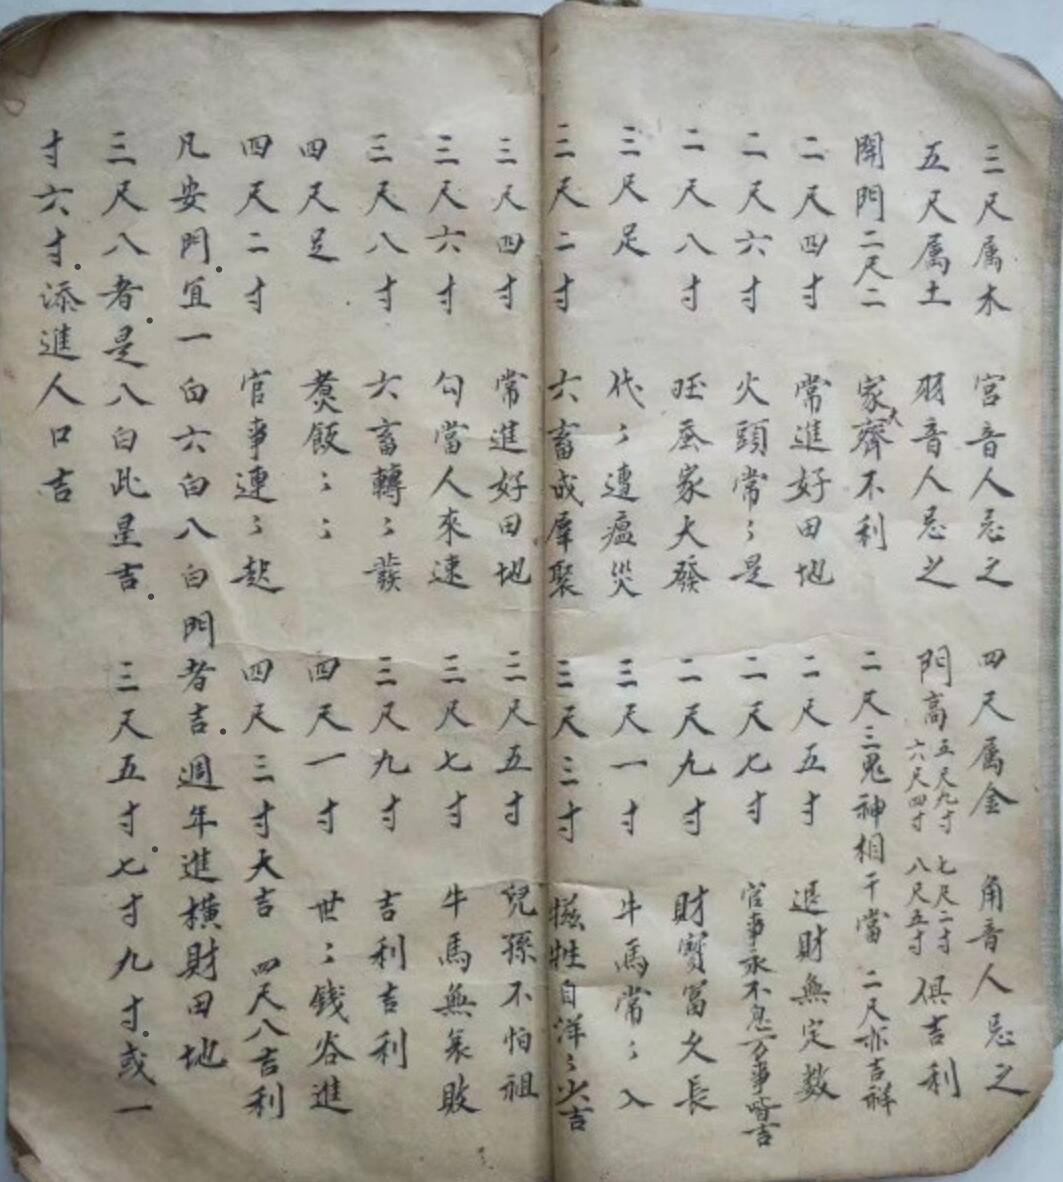 三尺属木 宮音人忌之 四尺属金 角音人忌之
五尺属土 羽音人忌之 門高五尺九寸 七尺二寸六尺四寸 八尺五寸俱吉利
開門二尺二 家人齊不利 二尺三鬼神相干當 二尺亦吉祥
二尺四寸 常進好田地 二尺五寸 退財無定数
二尺六寸 火頭常〻是 二尺七寸 官事永不息万事皆吉
二尺八寸 旺蚕家大發 二尺九寸 財寶冨久長
三尺足 代〻遭瘟災 三尺一寸 牛馬常〻入
三尺二寸 六畜成羣聚 三尺三寸 犠牲自洋〻大吉
三尺四寸 常進好田地 三尺五寸 兒孫不怕祖
三尺六寸 勾當人來速 三尺七寸 牛馬無衰敗
三尺八寸 六畜轉〻發 三尺九寸 吉利吉利
四尺足 煑飯〻〻 四尺一寸 世〻錢谷進
四尺二寸 官事連〻起 四尺三寸大吉 四尺八吉利
凡安門宜一白六白八白門者吉週年進横財田地
三尺八者是八白此星吉 三尺五寸七寸九寸或一
寸六寸添進人口吉